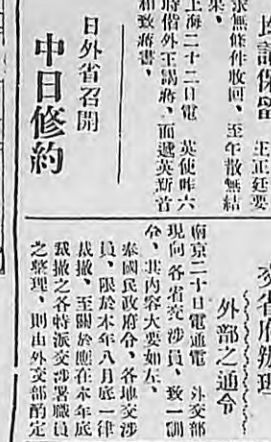 求無條件收回、至午散無結
果、
上海二十二日電　英使昨六
時偕外王謁蔣、面遞英新首
相致蔣書、
日外省召開
中日修約
交省府辦理
外部之通令
南京二十日電通電　外交部
現向各省交涉員、致一訓
令、其內容大要如左、
奉國民政府令、各地交涉
員、限於本年八月底一律
裁撤、至關於應在本年底
裁撤之各特派交涉署職員
之整理、則由外交部酌定